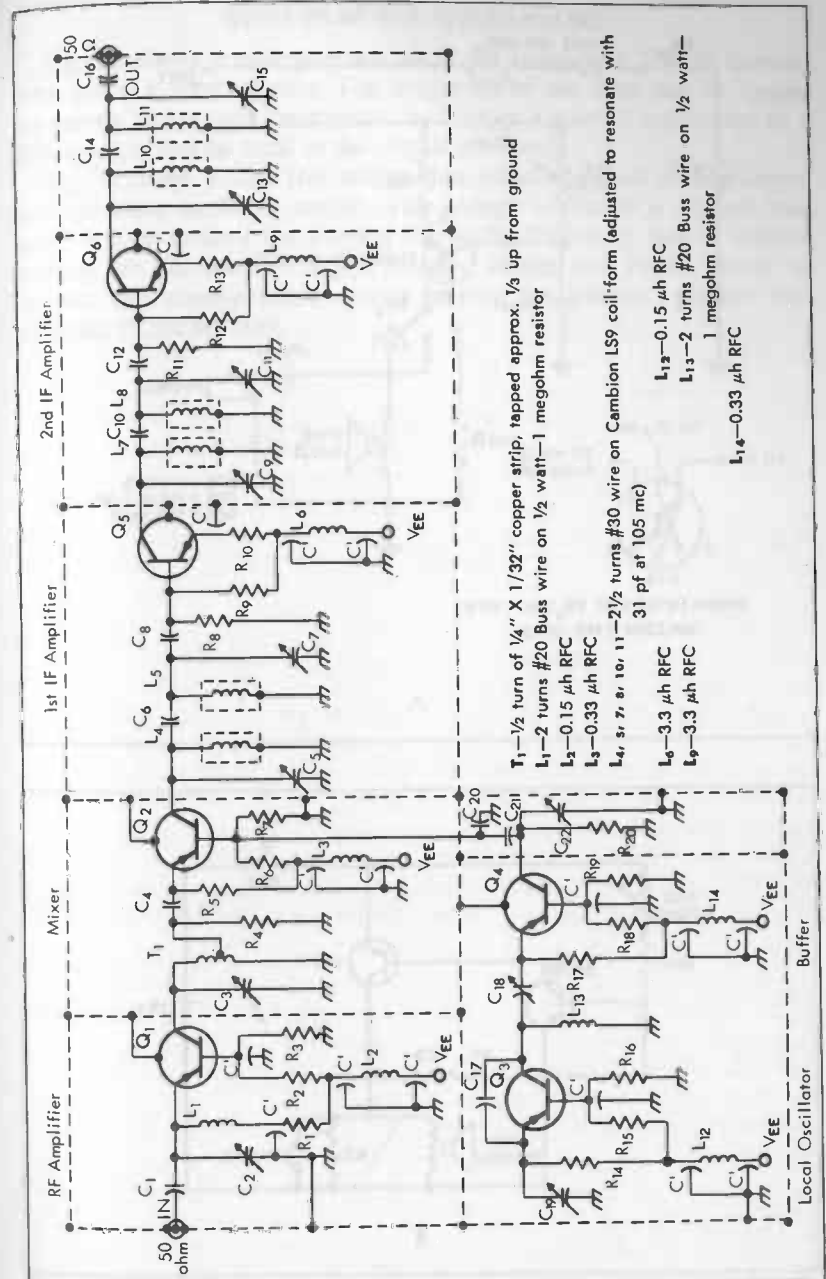 RF Amplifier
Mixer
1st IF Amplifier
2nd IF Amplifier
50
ohm
IN
C1
C2
L1
R1
C'
R2
C'
R3
Q1
C'
L2
C'
VEE
C3
T1
R4
C4
R5
R6
R7
Q2
C'
L3
C'
VEE
C5
L4
C6
L5
C7
C8
R8
R9
R10
Q5
C'
C'
L6
C'
VEE
C9
L7
C10
L8
C11
C12
R11
R12
R13
Q6
C'
C'
L9
C'
VEE
C13
L10
C14
L11
C15
C16
OUT
50
Ω
C19
R14
C17
Q3
C'
R15
R16
C'
L12
C'
VEE
L13
C18
R17
Q4
C'
R18
R19
C'
L14
C'
VEE
C20
C21
C22
R20
Local Oscillator
Buffer
T1—1/2 turn of 1/4" X 1/32" copper strip, tapped approx. 1/3 up from ground
L1—2 turns #20 Buss wire on 1/2 watt—1 megohm resistor
L2—0.15 μh RFC
L3—0.33 μh RFC
L4, 5, 7, 8, 10, 11—2 1/2 turns #30 wire on Cambion LS9 coil form (adjusted to resonate with
31 pf at 105 mc)
L6—3.3 μh RFC
L9—3.3 μh RFC
L12—0.15 μh RFC
L13—2 turns #20 Buss wire on 1/2 watt—
1 megohm resistor
L14—0.33 μh RFC